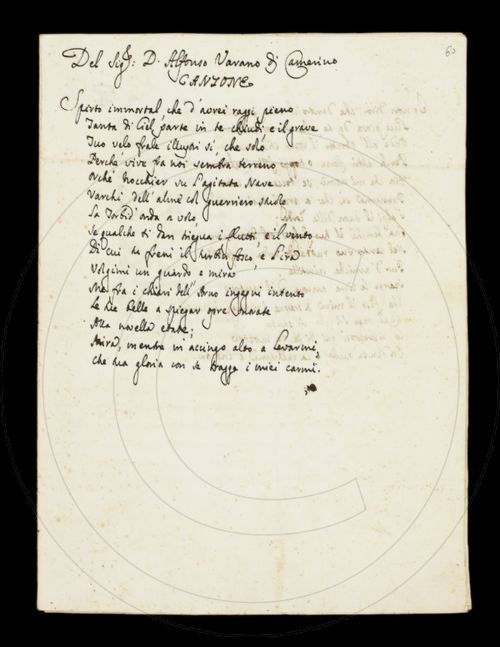 60
Del Sig.r: D. Alfonso Varano di Camerino
CANZONE
Spirto immortal che d'aurei raggi pieno
Tanta di Ciel parte in te chiudi e il grave
Tuo velo frale illustri sì, che solo
Perché vive fra noi sembra terreno
Orché Nocchier su l'agitata Nave
Varchi dell'alme col guerriero stuolo
La torbid'onda a volo
Se qualche ti dan triegua i flutti e il vento
Di cui tu freni il turbin fosco e l'ira
Volgimi un guardo e mira
Me fra i chiari dell'Arno ingegni intento
Le tue belle a spiegar opre ornate
Alla novella etate:
Mira, mentre m'accingo alto a levarmi,
che tua gloria con te tragge i miei carmi.